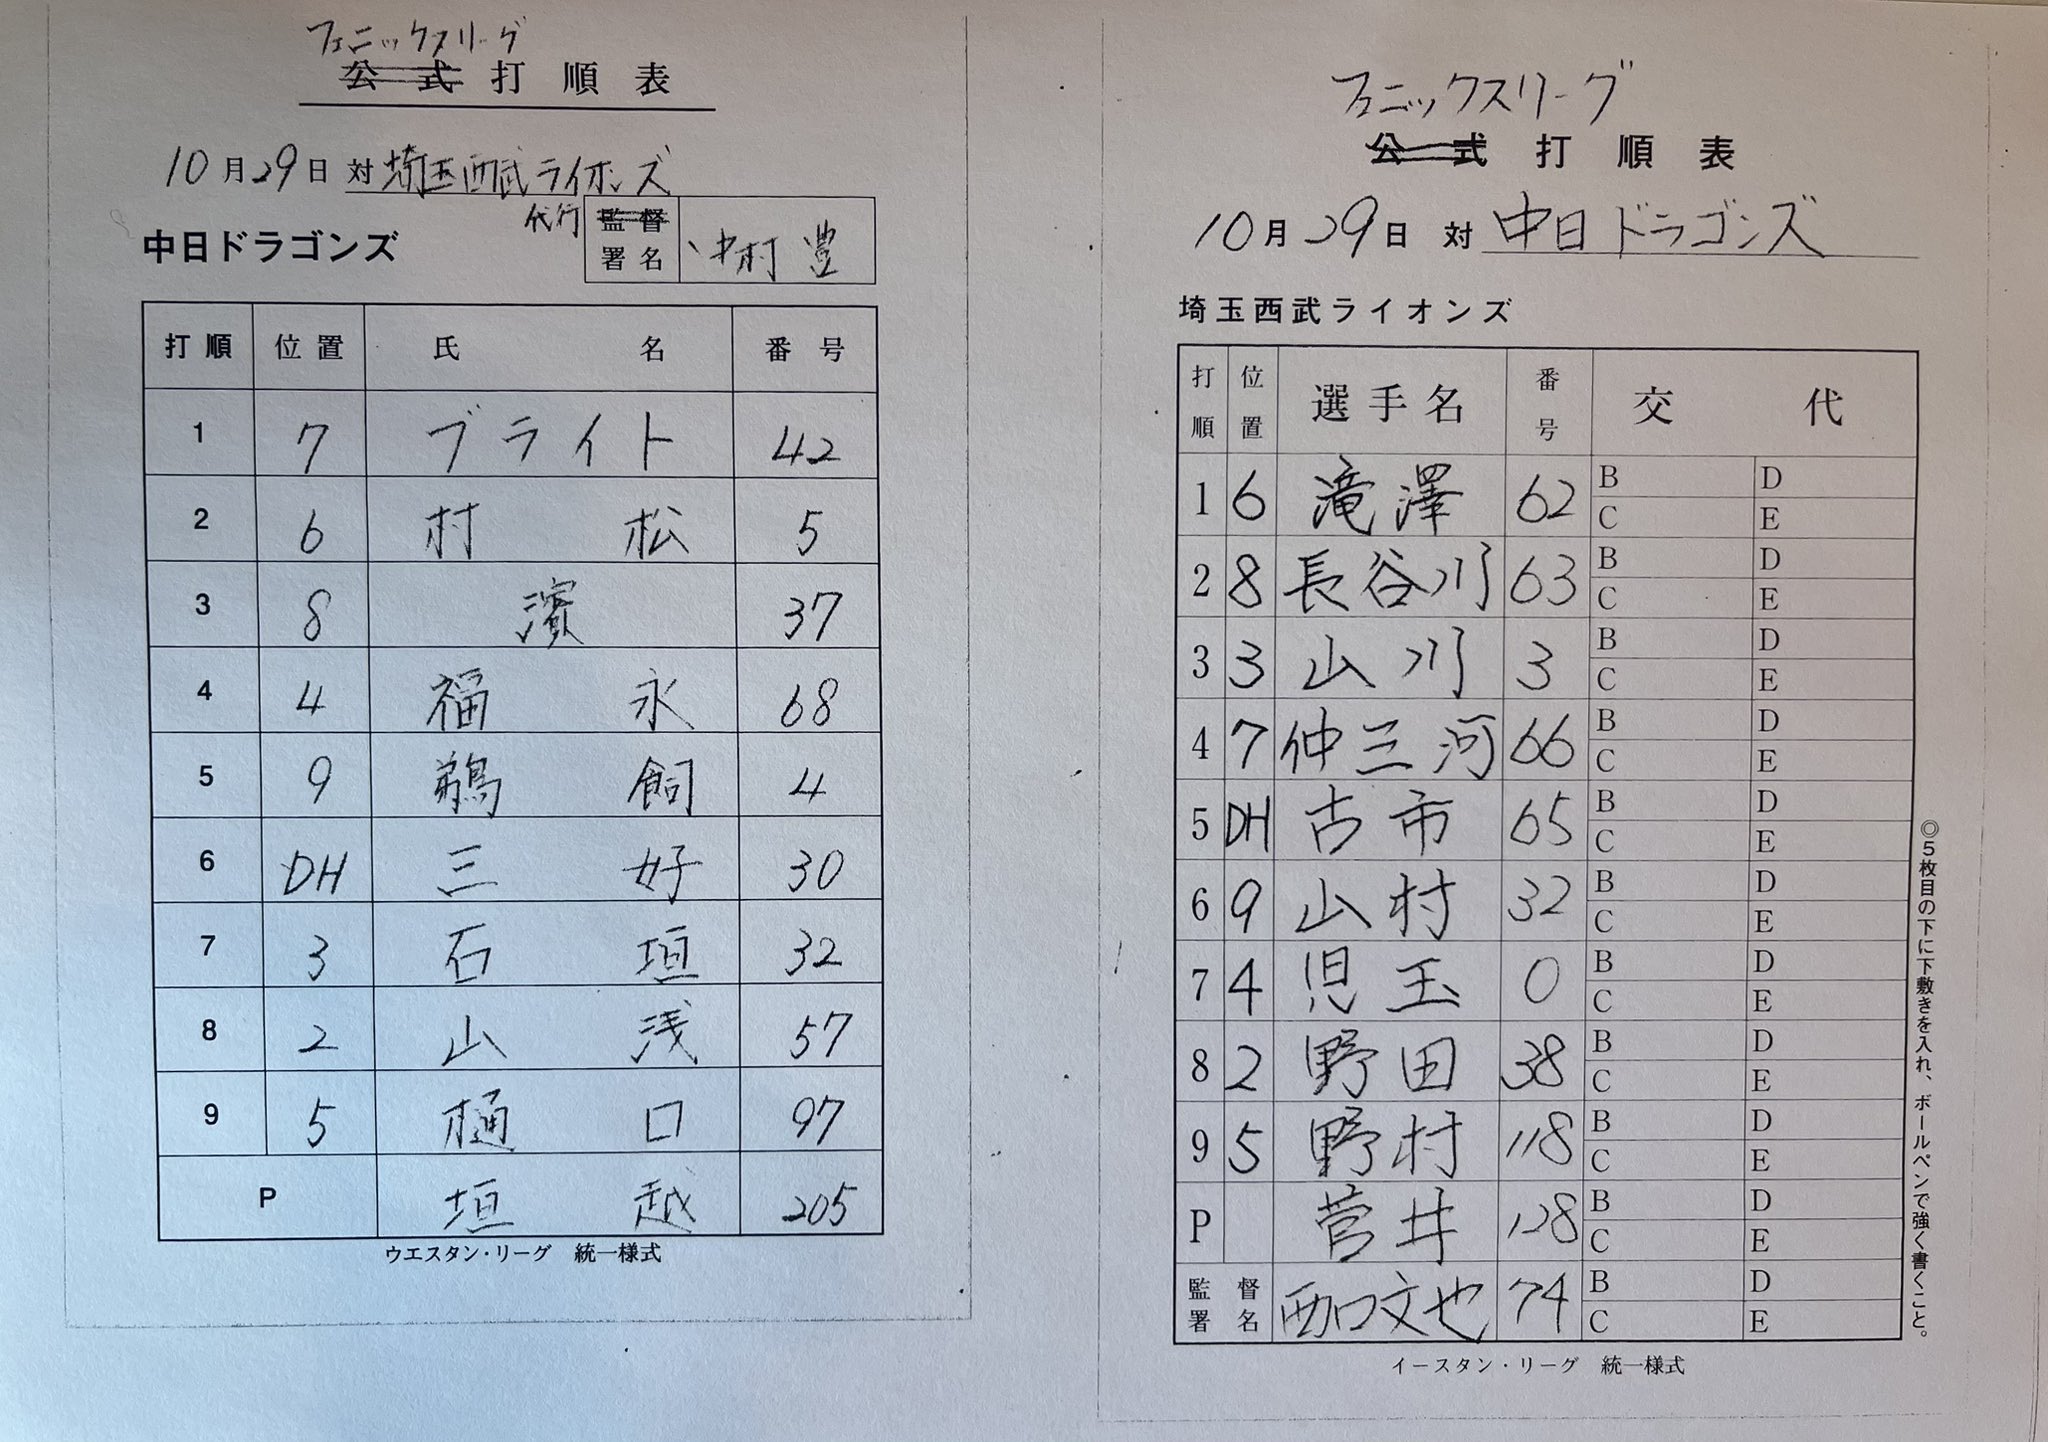 フェニックスリーグ
公式打順表
10月29日 対 埼玉西武ライオンズ
中日ドラゴンズ
代行 監督署名 中村 豊
打順 位置 氏名 番号
1 7 ブライト 42
2 6 村松 5
3 8 濱 37
4 4 福永 68
5 9 鵜飼 4
6 DH 三好 30
7 3 石垣 32
8 2 山浅 57
9 5 樋口 97
P 垣越 205
ウエスタン・リーグ 統一様式
フェニックスリーグ
公式打順表
10月29日 対 中日ドラゴンズ
埼玉西武ライオンズ
打順 位置 選手名 番号 交代
1 6 滝澤 62 B D
C E
2 8 長谷川 63 B D
C E
3 3 山川 3 B D
C E
4 7 仲三河 66 B D
C E
5 DH 古市 65 B D
C E
6 9 山村 32 B D
C E
7 4 児玉 0 B D
C E
8 2 野田 38 B D
C E
9 5 野村 118 B D
C E
P 菅井 128 B D
C E
監督署名 西口文也 74 B D
C E
イースタン・リーグ 統一様式
◎5枚目の下に下敷きを入れ、ボールペンで強く書くこと。